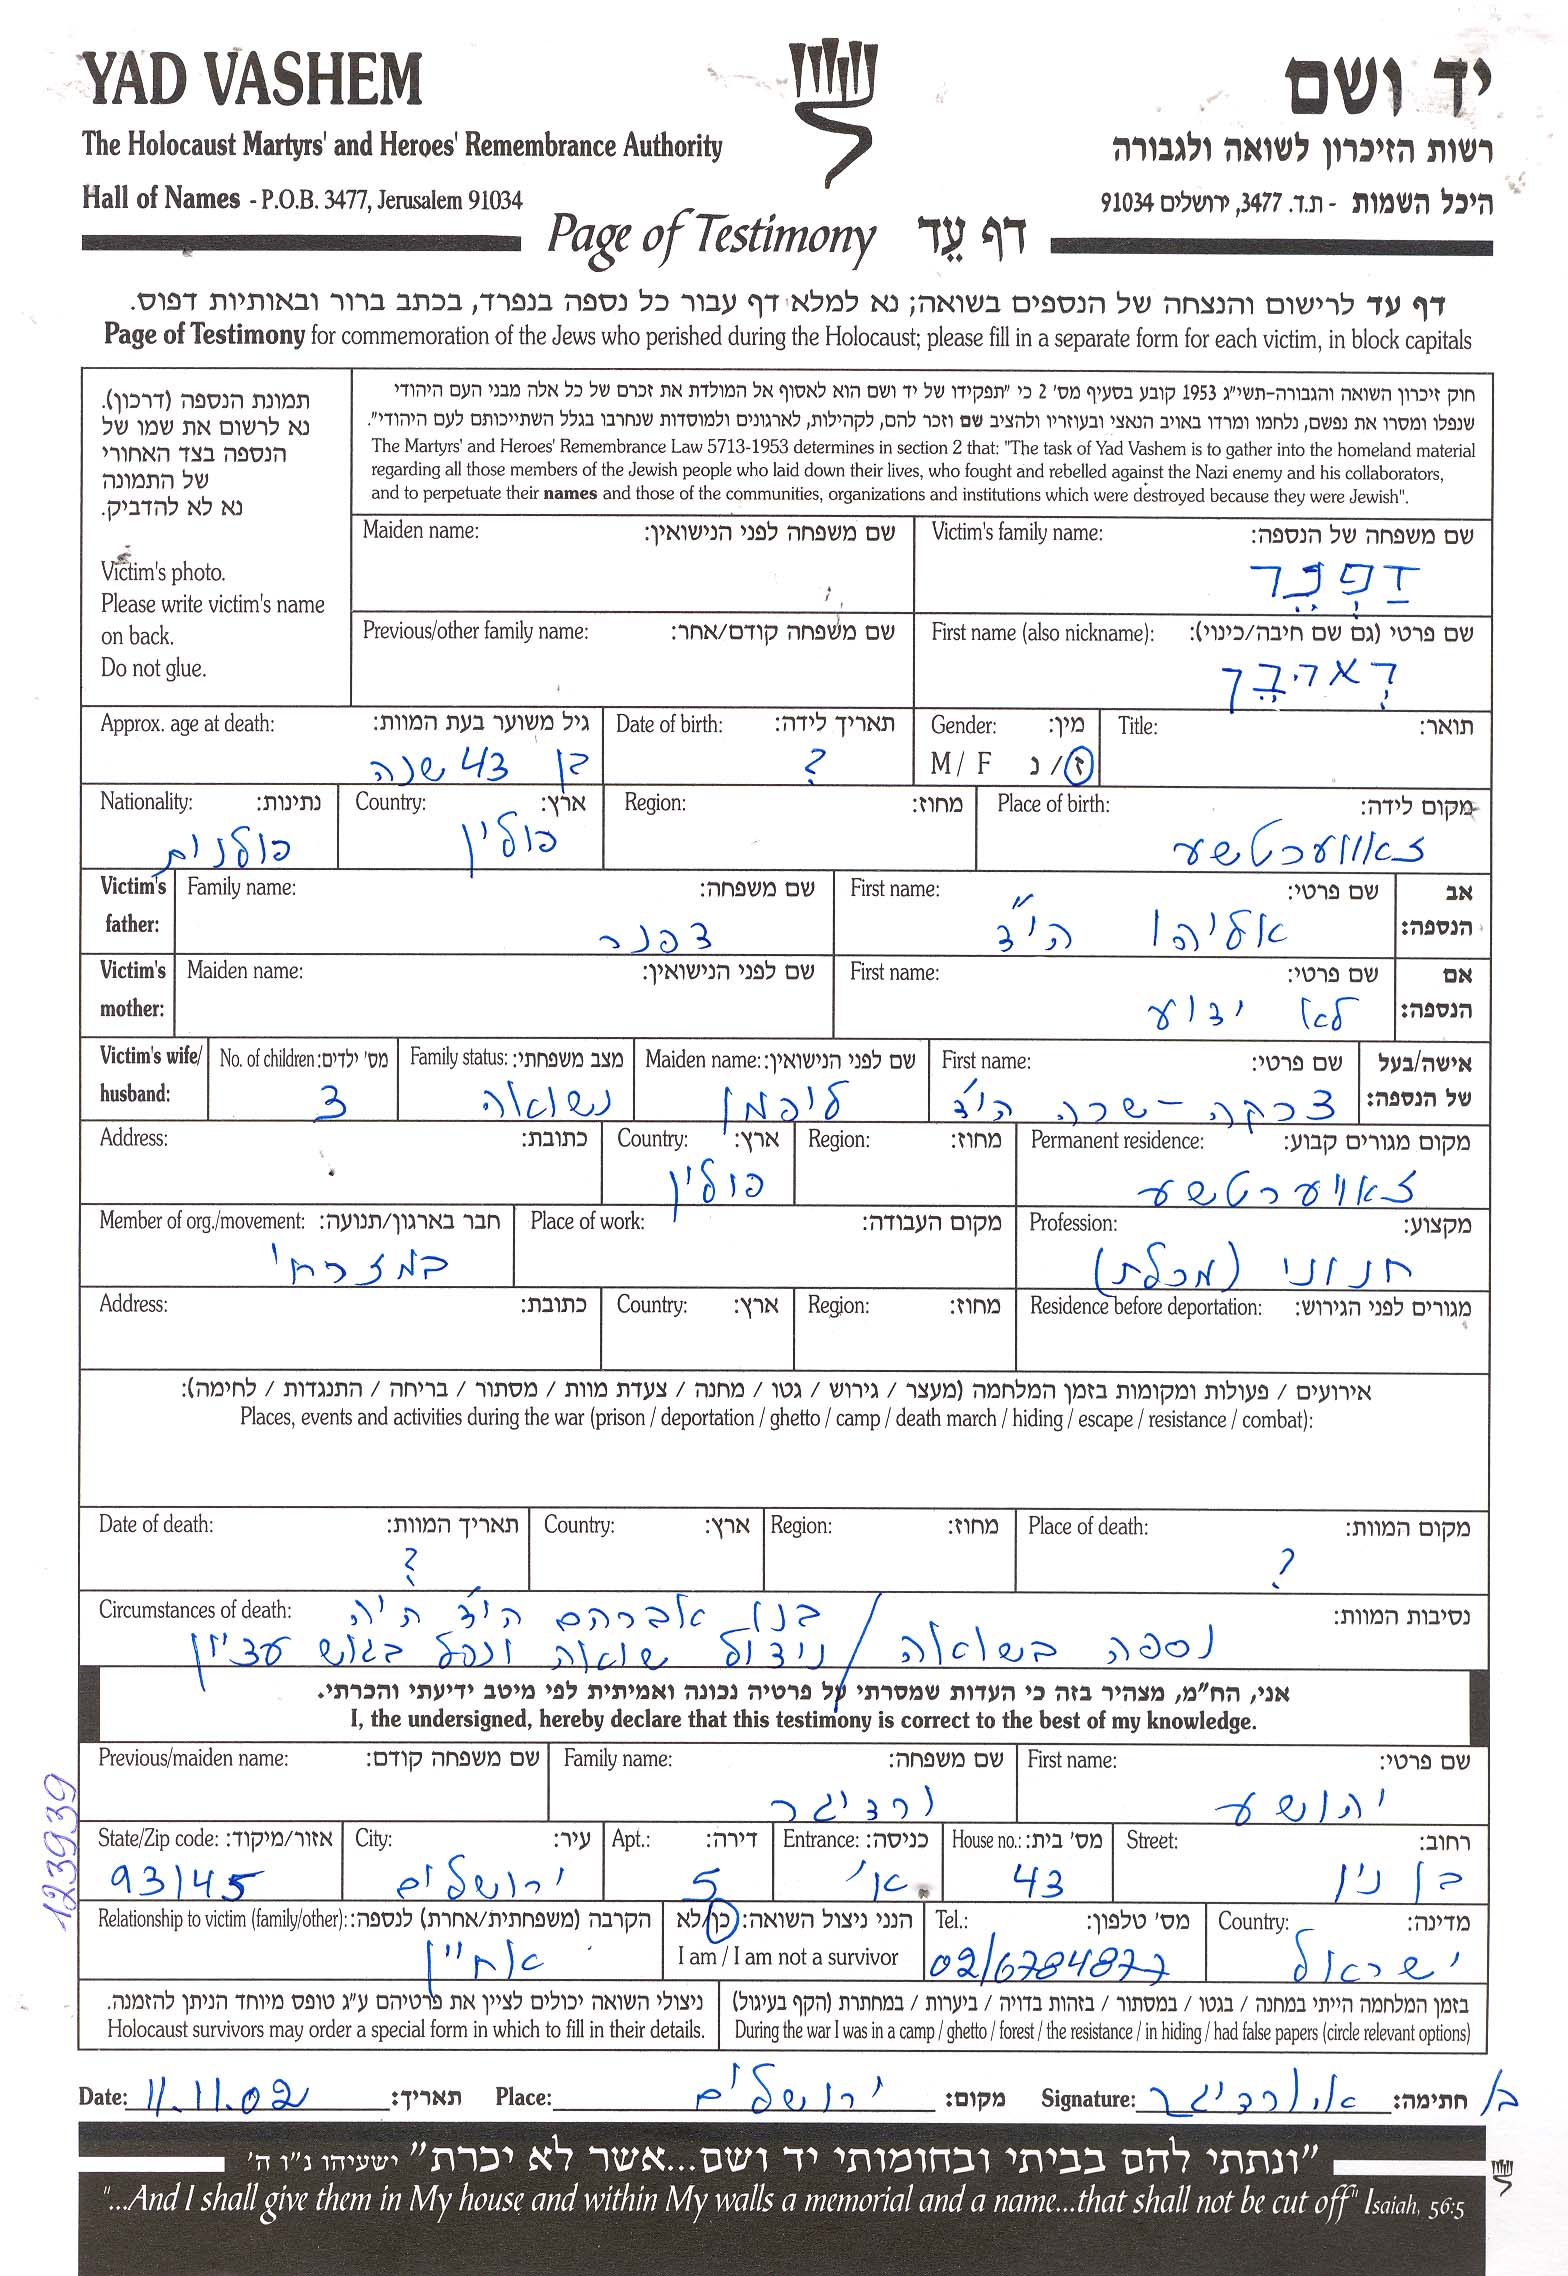 YAD VASHEM
יד ושם
The Holocaust Martyrs' and Heroes' Remembrance Authority
רשות הזיכרון לשואה ולגבורה
Hall of Names - P.O.B. 3477, Jerusalem 91034
היכל השמות - ת.ד. 3477, ירושלים 91034
Page of Testimony דף עֵד
דף עד לרישום והנצחה של הנספים בשואה; נא למלא דף עבור כל נספה בנפרד, בכתב ברור ובאותיות דפוס.
Page of Testimony for commemoration of the Jews who perished during the Holocaust; please fill in a separate form for each victim, in block capitals
חוק זיכרון השואה והגבורה-תשי"ג 1953 קובע בסעיף מס' 2 כי "תפקידו של יד ושם הוא לאסוף אל המולדת את זכרם של כל אלה מבני העם היהודי
שנפלו ומסרו את נפשם, נלחמו ומרדו באויב הנאצי ובעוזריו ולהציב שם וזכר להם, לקהילות, לארגונים ולמוסדות שנחרבו בגלל השתייכותם לעם היהודי".
The Martyrs' and Heroes' Remembrance Law 5713-1953 determines in section 2 that: "The task of Yad Vashem is to gather into the homeland material
regarding all those members of the Jewish people who laid down their lives, who fought and rebelled against the Nazi enemy and his collaborators,
and to perpetuate their names and those of the communities, organizations and institutions which were destroyed because they were Jewish".
תמונת הנספה (דרכון).
נא לרשום את שמו של
הנספה בצד האחורי
של התמונה
נא לא להדביק.
Victim's photo.
Please write victim's name
on back.
Do not glue.
Victim's family name: שם משפחה של הנספה:
Maiden name: שם משפחה לפני הנישואין:
First name (also nickname): שם פרטי (גם שם חיבה/כינוי):
Previous/other family name: שם משפחה קודם/אחר:
Title: תואר:
Gender: מין:
M / F ז/נ
Date of birth: תאריך לידה:
?
Approx. age at death: גיל משוער בעת המוות:
בן 43 שנה
Place of birth: מקום לידה:
זאווערטשע
Region: מחוז:
Country: ארץ:
פולין
Nationality: נתינות:
פולנית
Victim's father: אב הנספה:
First name: שם פרטי:
אליהו הי"ד
Family name: שם משפחה:
דפנר
Victim's mother: אם הנספה:
First name: שם פרטי:
לא ידוע
Maiden name: שם לפני הנישואין:
Victim's wife/husband: אישה/בעל של הנספה:
First name: שם פרטי:
שרה הי"ד
Maiden name: שם לפני הנישואין:
ליפמן
Family status: מצב משפחתי:
נשואה
No. of children: מס' ילדים:
3
Permanent residence: מקום מגורים קבוע:
זאווערטשע
Region: מחוז:
Country: ארץ:
פולין
Address: כתובת:
Profession: מקצוע:
חנווני (מכלת)
Place of work: מקום העבודה:
Member of org./movement: חבר בארגון/תנועה:
במזרחי
Residence before deportation: מגורים לפני הגירוש:
Region: מחוז:
Country: ארץ:
Address: כתובת:
אירועים / פעולות ומקומות בזמן המלחמה (מעצר / גירוש / גטו / מחנה / צעדת מוות / מסתור / בריחה / התנגדות / לחימה):
Places, events and activities during the war (prison / deportation / ghetto / camp / death march / hiding / escape / resistance / combat):
Place of death: מקום המוות:
?
Region: מחוז:
Country: ארץ:
Date of death: תאריך המוות:
?
Circumstances of death: נסיבות המוות:
נספה בשואה / בנו אברהם הי"ד היה
ניצול שואה ונפל בגוש עציון
אני, הח"מ, מצהיר בזה כי העדות שמסרתי על פרטיה נכונה ואמיתית לפי מיטב ידיעתי והכרתי.
I, the undersigned, hereby declare that this testimony is correct to the best of my knowledge.
First name: שם פרטי:
יהושע
Family name: שם משפחה:
ורדיגר
Previous/maiden name: שם משפחה קודם:
Street: רחוב:
House no.: מס' בית:
43
Entrance: כניסה:
א'
Apt.: דירה:
5
City: עיר:
ירושלים
State/Zip code: אזור/מיקוד:
93145
Country: מדינה:
ישראל
Tel.: מס' טלפון:
02/6784877
הנני ניצול השואה: כן/לא
I am / I am not a survivor
Relationship to victim (family/other): הקרבה (משפחתית/אחרת) לנספה:
אחיין
בזמן המלחמה הייתי במחנה / בגטו / במסתור / בזהות בדויה / ביערות / במחתרת (הקף בעיגול)
During the war I was in a camp / ghetto / forest / the resistance / in hiding / had false papers (circle relevant options)
ניצולי השואה יכולים לציין את פרטיהם ע"ג טופס מיוחד הניתן להזמנה.
Holocaust survivors may order a special form in which to fill in their details.
Date: 11.11.02 תאריך: Place: ירושלים מקום: Signature: חתימה:
"ונתתי להם בביתי ובחומותי יד ושם...אשר לא יכרת" ישעיהו נ"ו ה'
"...And I shall give them in My house and within My walls a memorial and a name...that shall not be cut off" Isaiah, 56:5
123939